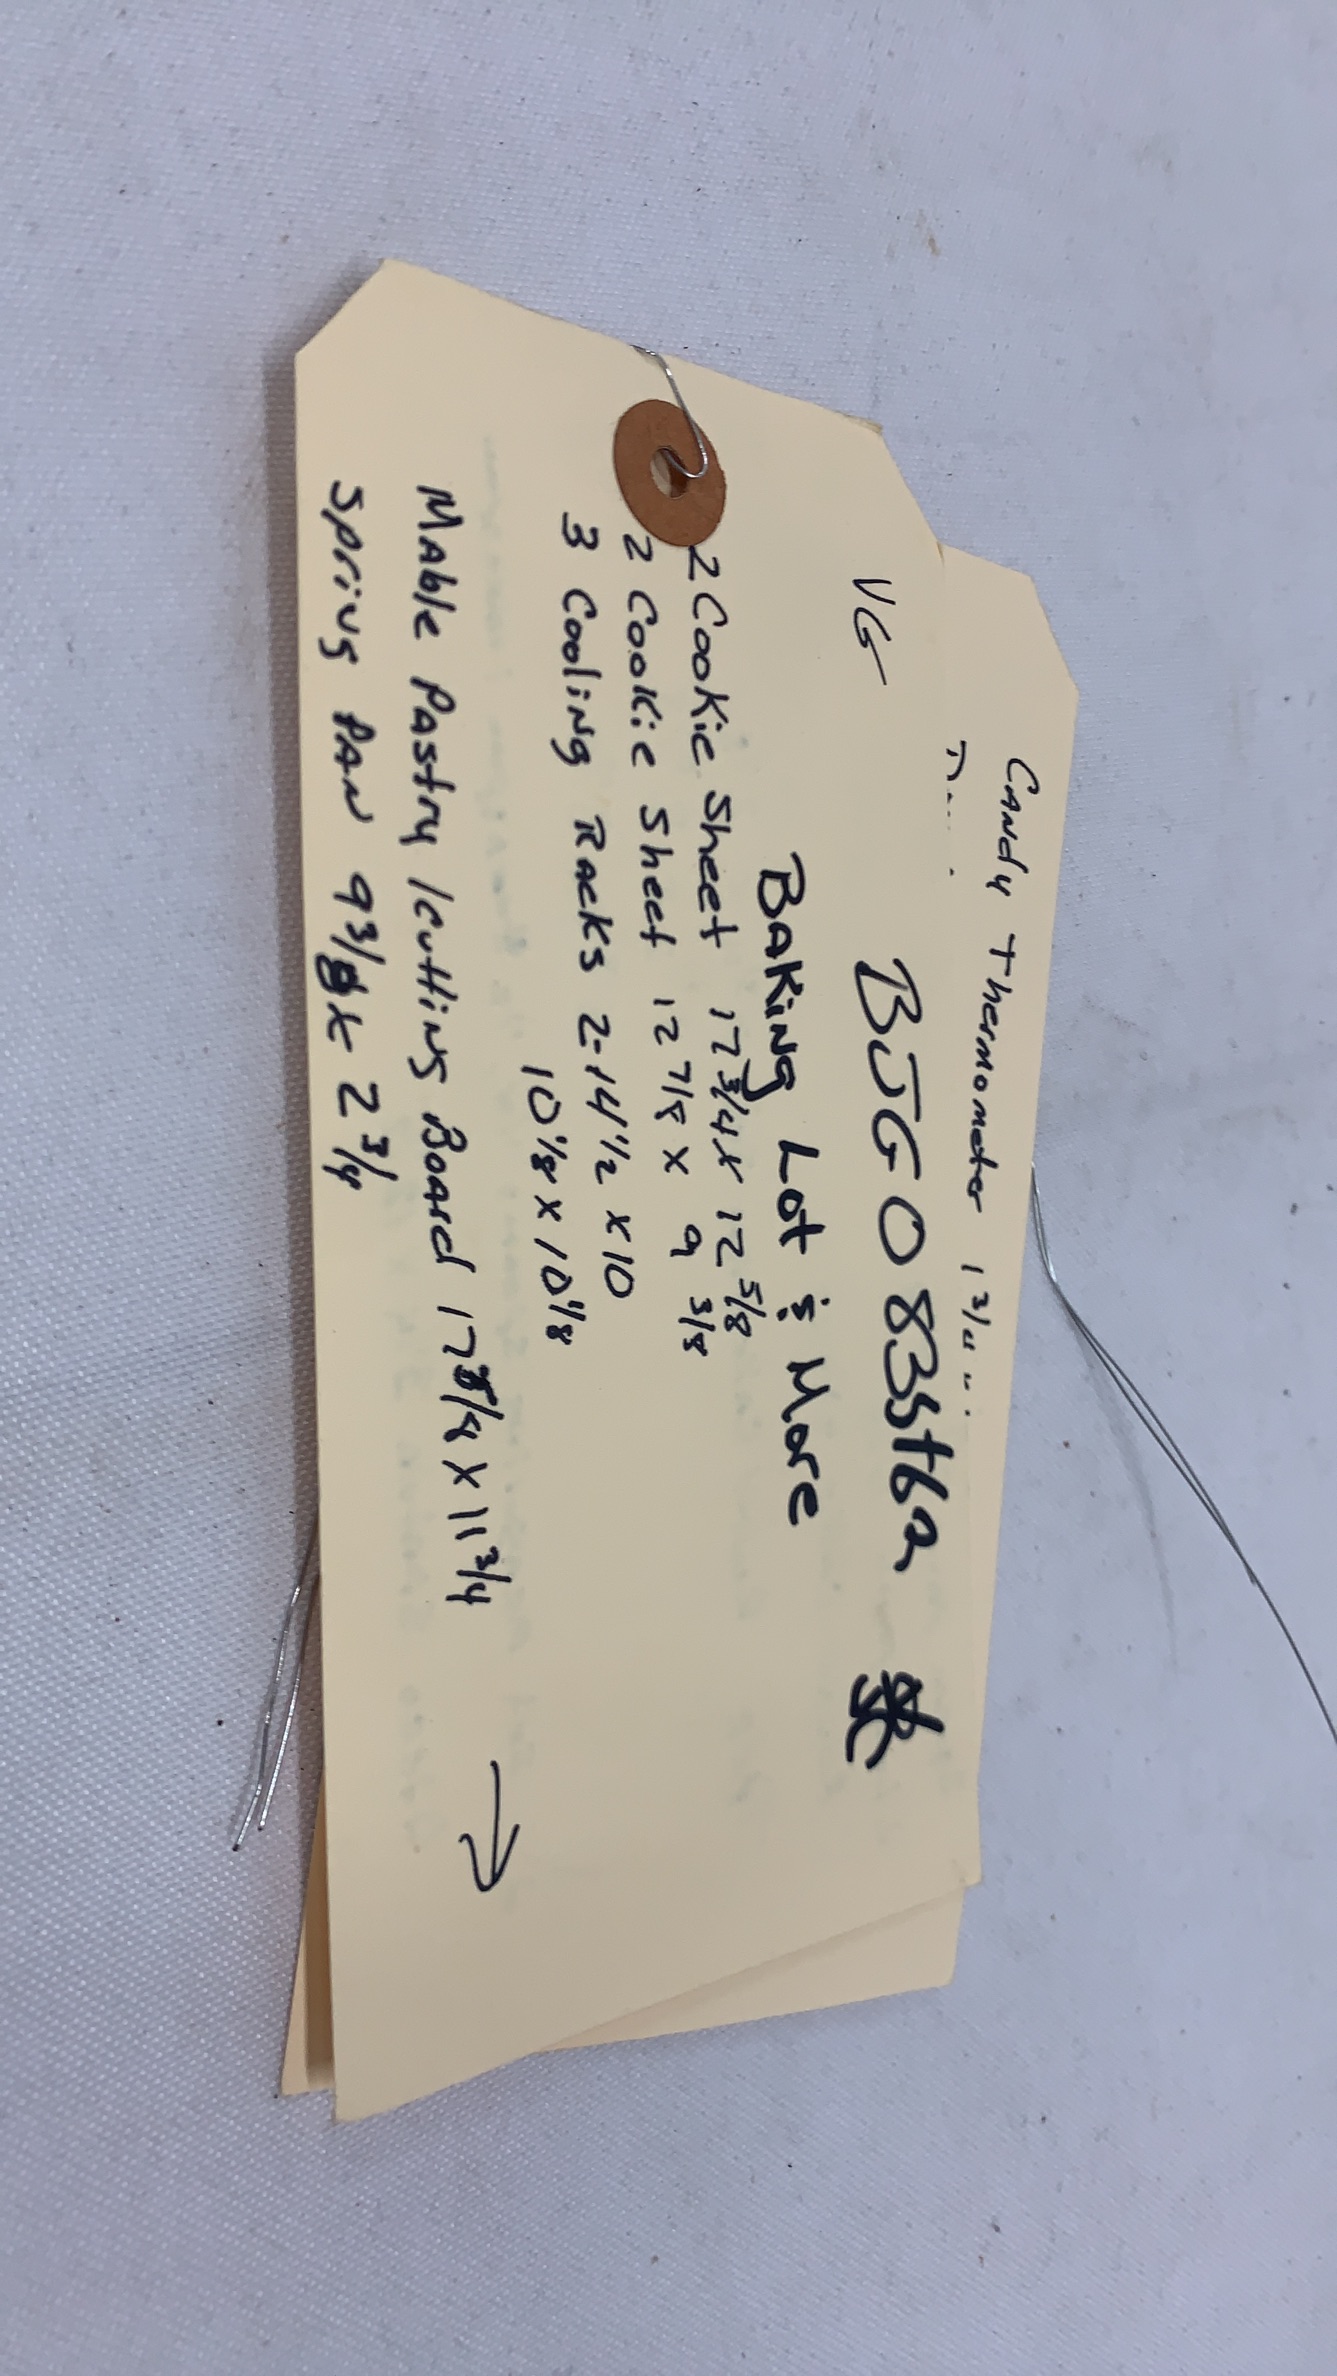 Candy Thermometer 1 3/4
VG BJG0835t6a
Baking Lot & More
2 Cookie Sheet 17 3/4 x 12 5/8
2 Cookie Sheet 12 7/8 x 9 3/8
3 Cooling Racks 2-14 1/2 x 10
10 1/8 x 10 1/8
Mable Pastry / Cutting Board 17 x 11 3/4
Spring Pan 9 3/8 x 2 3/4
→